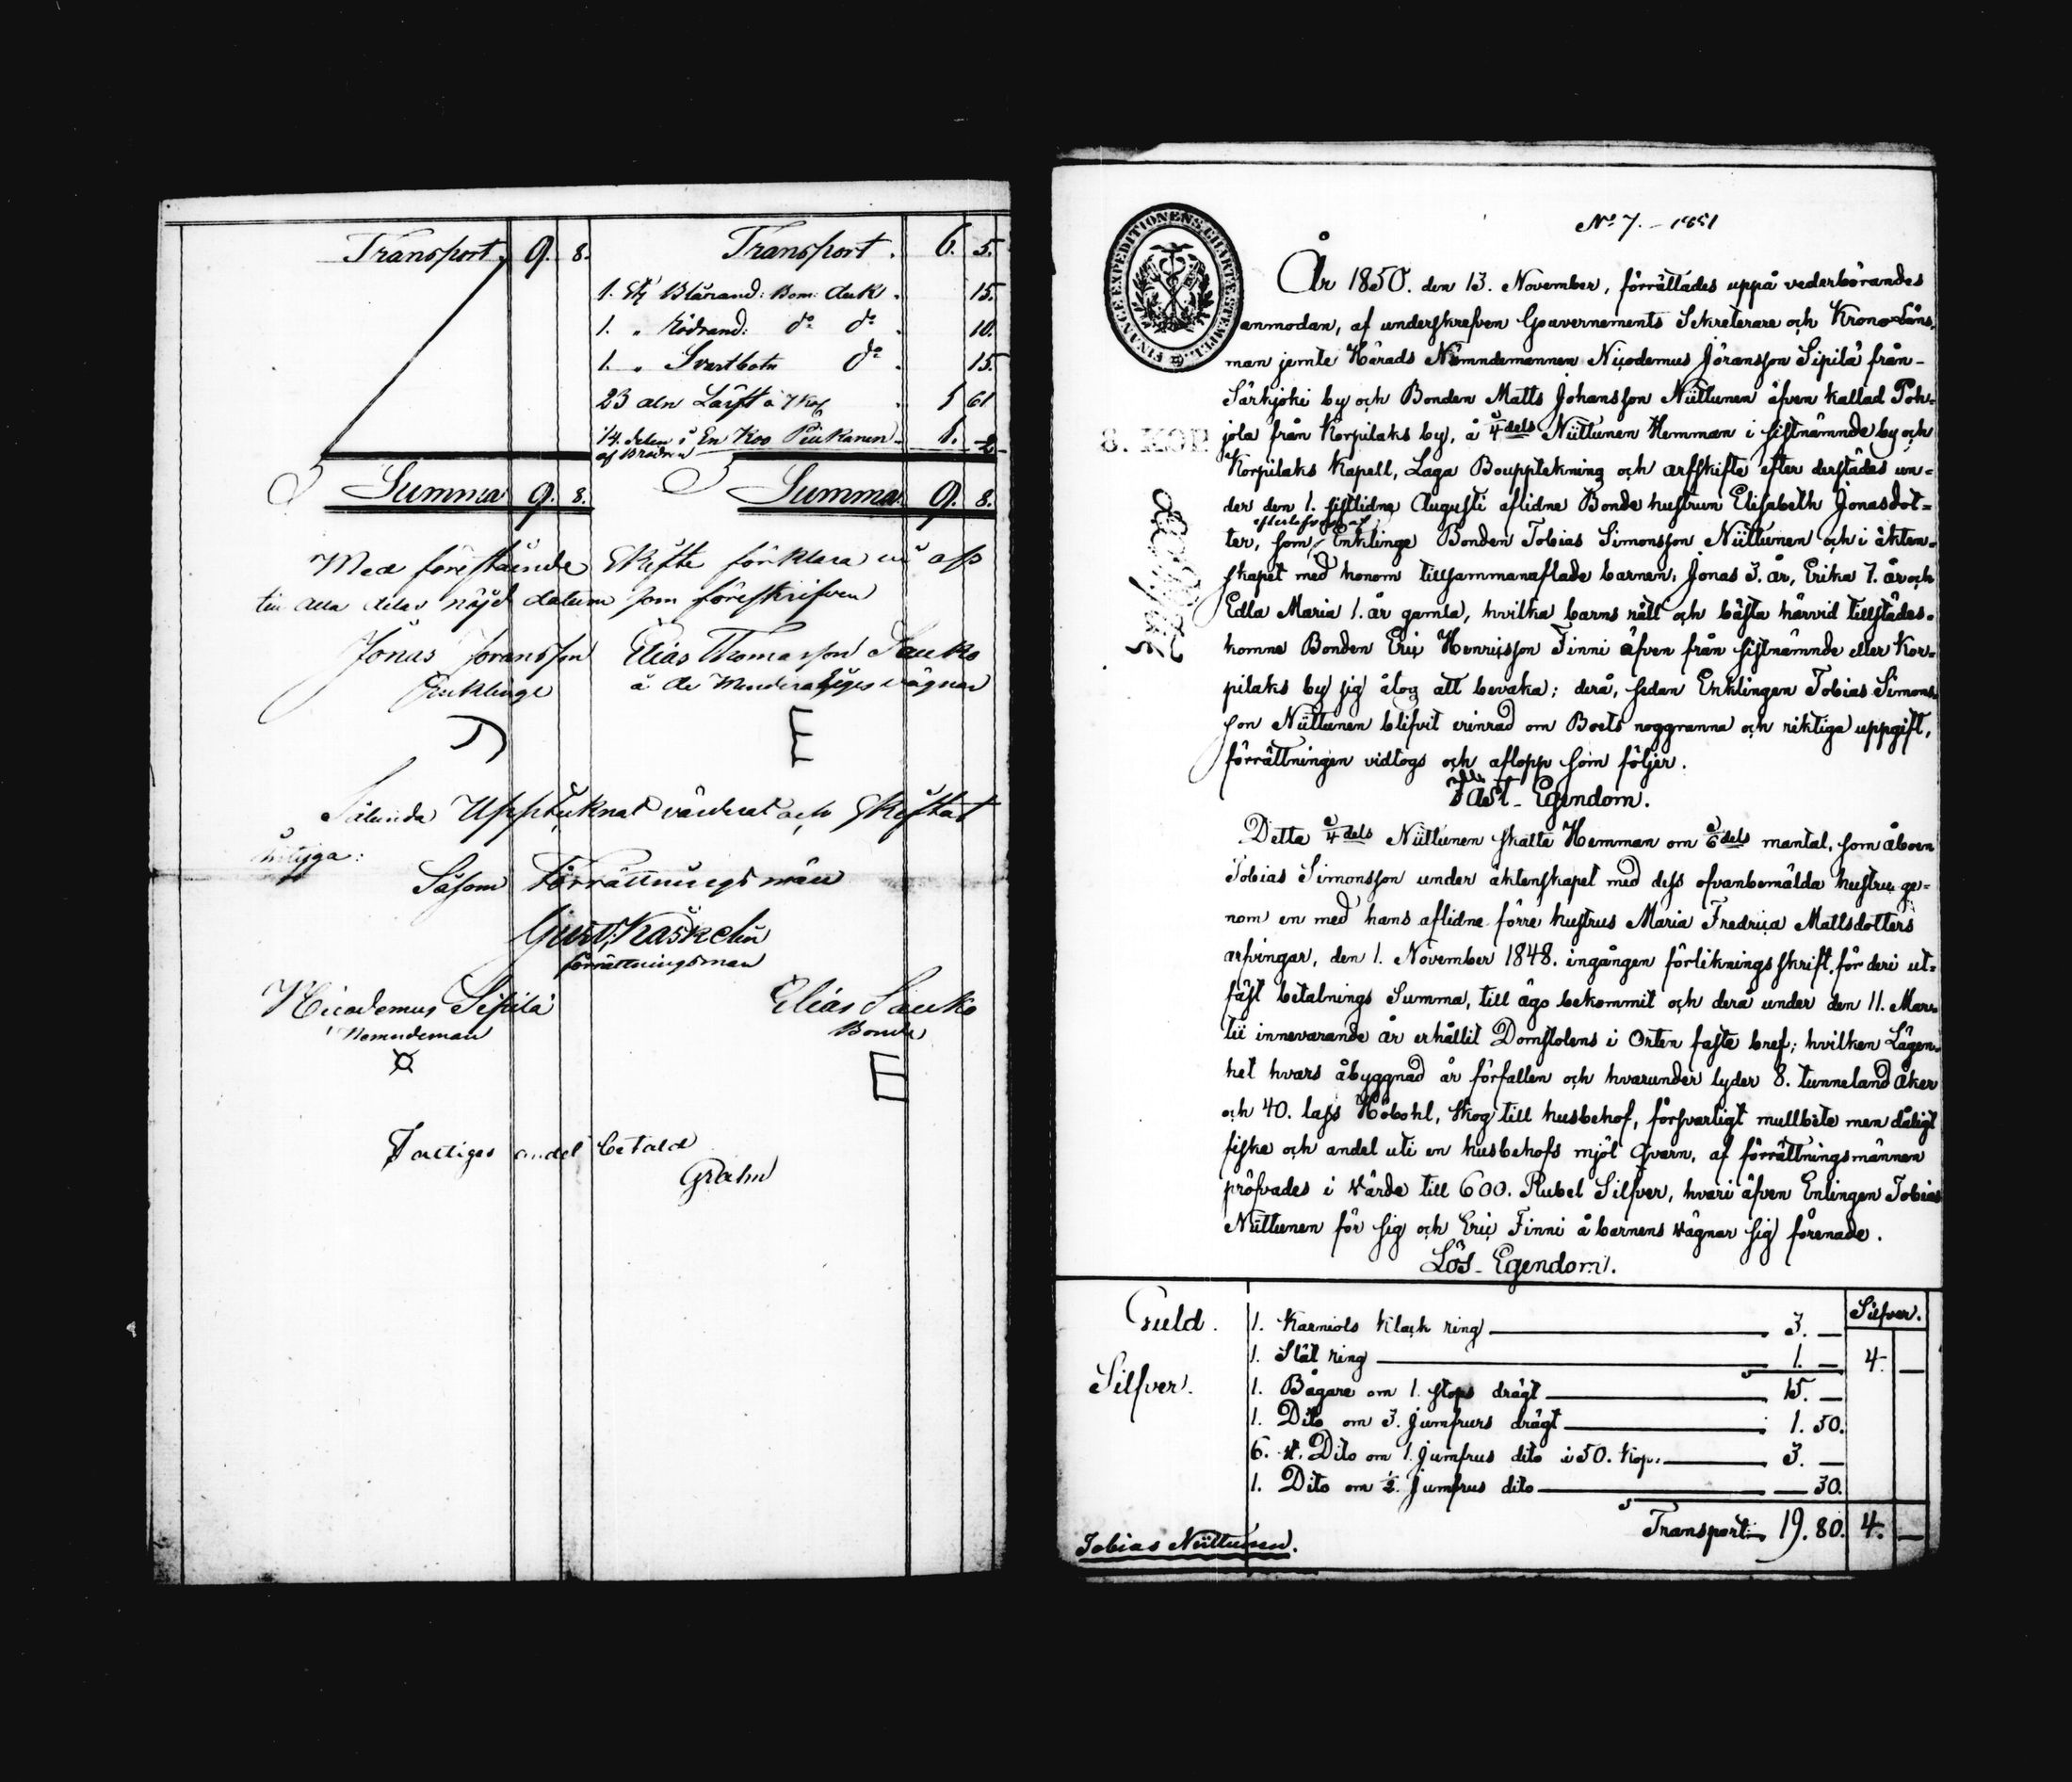 Transport. 9. 8. Transport. 6. 5.
1. St Blårand: Bom: duk. 15.
1. " Rödrand: do do. 10.
1. " Svartbotn do. 15.
23 aln Lärft a 7 Kop 1 61
1/4 delen i En Koo Piukanen 1. 2
af Brodren
Summa 9. 8. Summa 9. 8.
Med föreståënde Skifte förklara vi oss
till alla delar nöjd datum som föreskrifven
Jonas Joransson Elias Thomasson Sauko
Enklinge å de Minderåriges vägnar
Sålunda Upptecknat värderat och Skiftat
intyga:
Såsom Förrättningsmän
förrättningsman
Nicodemus Sipilä Elias Sauko
Nämndeman Bonde
Fattiges andel betald
Grahn
No 7. - 1851
FINANCE EXPEDITIONENS CHARTÆ STEMPEL.
8. KOP
År 1850. den 13. November, förrättades uppå vederbörandes
anmodan, af underskrefven Gouvernements Sekreterare och Krono Läns-
man jemte Härads Nämndemannen Nicodemus Jöransson Sipilä från
Särkjoki by och Bonden Matts Johansson Niittunen äfven kallad Poh-
jola från Korpilaks by, å 1/4dels Niittunen Hemman i sistnämnde by och
Korpilaks Kapell, Laga Bouppteckning och arfskifte efter derstädes un-
der den 1. sistlidne Augusti aflidne Bonde hustrun Elisabeth Jonasdot-
efterlefvas af
ter, som Enklinge Bonden Tobias Simonsson Niittunen och i äkten-
skapet med honom tillsammanaflade barnen, Jonas 3. år, Erika 7. år och
Edla Maria 1. år gamla, hvilka barns rätt och bästa härvid tillstädes-
komne Bonden Eric Henricsson Finni äfven från sistnämnde eller Kor-
pilaks by sig ålog att bevaka; derå, sedan Enklingen Tobias Simons-
son Niittunen blifvit erinrad om Boets noggranna och riktiga uppgift,
förrättningen vidtogs och aflopp som följer.
Fast-Egendom.
Detta 1/4dels Niittunen skatte Hemman om 1/6dels mantal, som åboen
Tobias Simonsson under äktenskapet med dess ofvanbemälda hustru ge-
nom en med hans aflidne förre hustrus Maria Fredrica Mattsdotters
arfvingar, den 1. November 1848. ingången förlikningsskrift, för deri ut-
fäst betalnings Summa, till ägo bekommit och derå under den 11. Mar-
tii innevarande år erhållit Domstolens i Orten faste bref; hvilken Lägen-
het hvars åbyggnad är förfallen och hvarunder lyder 8. tunneland åker
och 40. lass Höbohl, skog till husbehof, försvarligt mullbete men dåligt
fiske och andel uti en husbehofs mjöl Qvarn, af förrättningsmännen
pröfvades i värde till 600. Rubel Silfver, hvari äfven Enlingen Tobias
Niittunen för sig och Eric Finni å barnens vägnar sig förenade.
Lös-Egendom.
Silfver.
Guld. 1. Karniols Klack ring 3. —
1. Slät ring 1. — 4. —
Silfver. 1. Bägare om 1. stops drägt 15. —
1. Dito om 3. jumfrurs drägt 1. 50.
6. st. Dito om 1. jumfrus dito à 50. Kop. 3. —
1. Dito om 1/2. jumfrus dito — 30.
Transport 19. 80. 4. —
Tobias Niittunen.